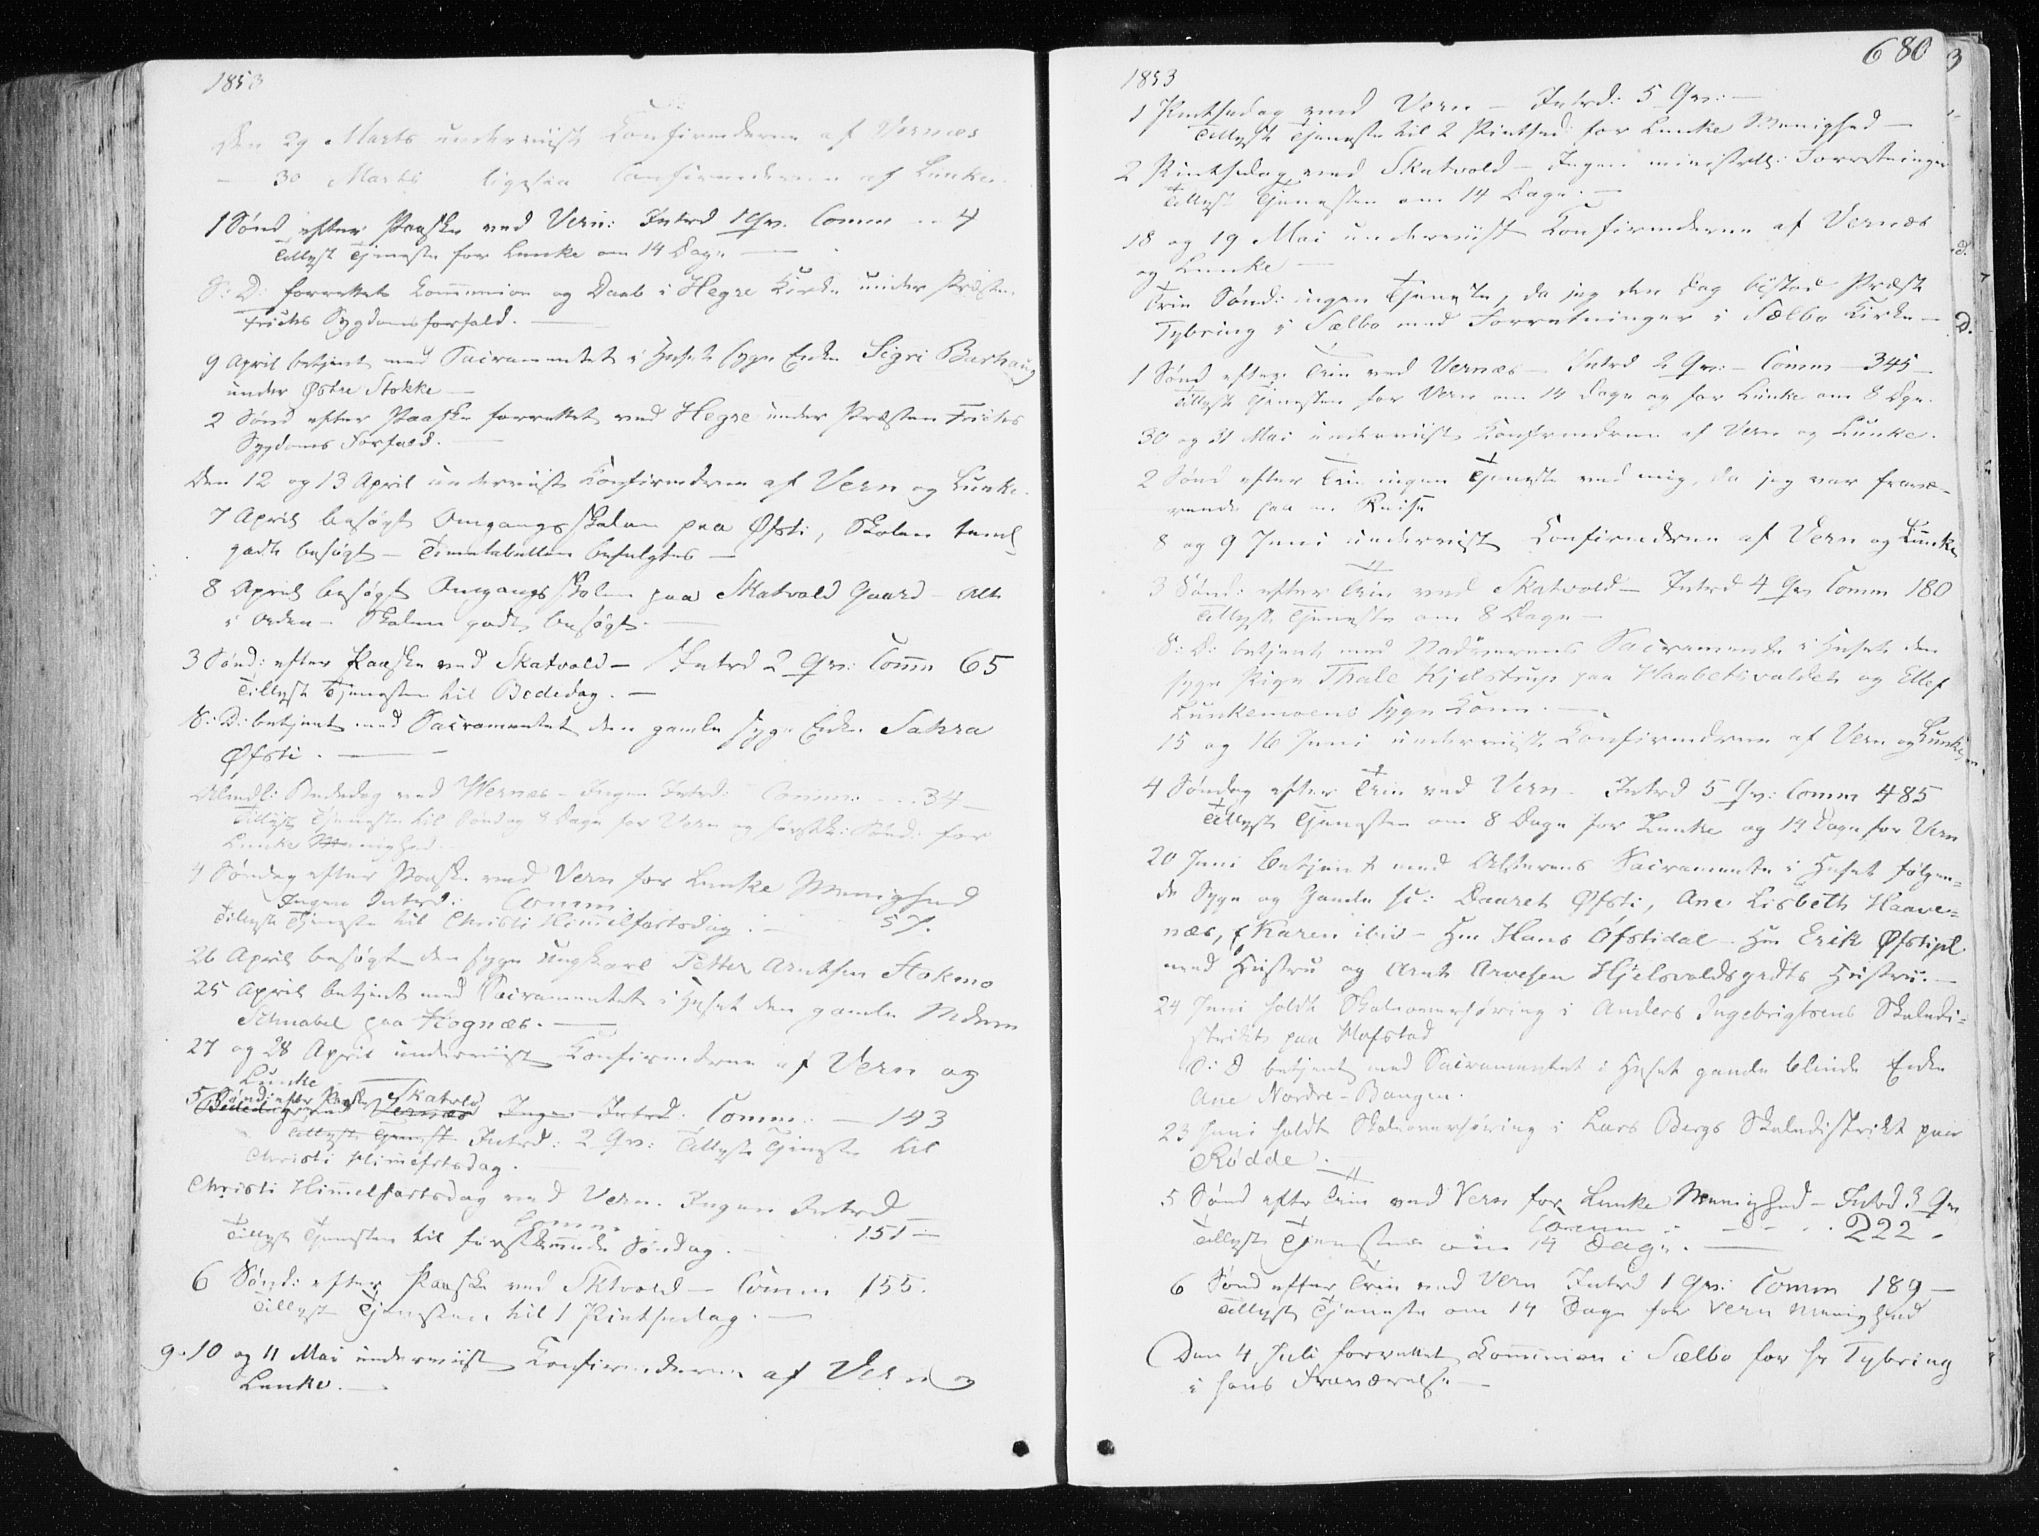 1853
Den 29 Marts underviist Confirmderne af Vernæs
- 30 Marts ligesaa Confirmderne af Lunke.
1 Sønd efter Paaske ved Vern: Introd 1 Qv. Comm .. 4
Tillyst Tjeneste for Lunke om 14 Dage —
S: D: forrettet Communion og Daab i Hegre Kirke under Præsten
Friis Sygdomsforfald. —
9 April betjent med Sacramentet i Huset syge Enke Sigri Barhaug
under Østre Stokke —
2 Sønd efter Paaske forrettet ved Hegre under Præsten Friis
Sygdoms Forfald. —
Den 12 og 13 April underviist Confirmdrene af Vern og Lunke.
7 April besøgt Omgangsskolen paa Øfsti, Skolen temel
godt besøgt — Timetabellen befulgtes —
8 April besøgt Omgangsskolen paa Skatvold Gaard — Alt
i Orden — Skolen godt besøgt. —
3 Sønd: efter Paaske ved Skatvold — Introd 2 Qv: Comm 65
Tillyst Tjenesten til Bededag. —
S: D: betjent med Sacramentet den gamle syge Enke Sahra
Øfsti. —
Almdl: Bededag ved Wernæs — Ingen Introd: Comm: ... 34 —
Tillyst Tjeneste til Søndag 8 Dage for Vern og førstk: Sønd: for
Lunke Menighed.
4 Søndag efter Paaske ved Vern for Lunke Menighed
Ingen Introd: Comm. 57.
Tillyst Tjeneste til Christi Himmelfartsdag. —
26 April besøgt den syge Ungkarl Petter Arntsen Stokmo
25 April betjent med Sacramentet i Huset den gamle Mdem
Schnabel paa Hognæs. —
27 og 28 April underviist Confirmderne af Vern og
Lunke —
5 Sønd: efter Paaske Skatvold
Bededag ved Vernæs Ingen Introd. Comm. — 143
Tillyst Tjenest Introd: 2 Qv: Tillyst Tjeneste til
Christi Himmelfrtsdag.
Christi Himmelfartsdag ved Vern. Ingen Introd —
Comm . 151 —
Tillyst Tjenesten til førstkommende Søndag.
6 Sønd: efter Paaske ved Sktvold — Comm 155.
Tillyst Tjenesten til 1 Pintsedag. —
9. 10 og 11 Mai underviist Confirmderne af Vern og
Lunke. —
680
1853
1 Pintsedag ved Vern — Introd: 5 Qv: —
Tillyst Tjeneste til 2 Pintsed: for Lunke Menighed —
2 Pintsedag ved Skatvold — Ingen ministrll: Forretninger
Tillyst Tjenesten om 14 Dage. —
18 og 19 Mai underviist Confirmderne af Vernæs
og Lunke —
Trin Sønd: ingen Tjeneste, da jeg den Dag bistod Præst
Tybring i Sælbo med Forretninger i Sælbo Kirke —
1 Sønd efter Trin ved Vernæs — Introd 2 Qv: — Comm — 345 —
Tillyst Tjenesten for Vern om 14 Dage og for Lunke om 8 Dge.
30 og 31 Mai underviist Confirmdrene af Vern og Lunke.
2 Sønd efter Trin ingen Tjeneste ved mig, da jeg var fravæ-
rende paa en Reise
8 og 9 Juni underviist Confirmdrene af Vern og Lunke
3 Sønd: efter Trin ved Skatvold — Introd 4 Qv Comm 180
Tillyst Tjeneste om 8 Dage —
S: D: betjent med Nadverens Sacramente i Huset den
syge Pige Thale Kjelstrup paa Haabetsvaldet og Ellef
Lunkemoens syge Kone. —
15 og 16 Juni underviist Confirmdrene af Vern og Lunke
4 Søndag efter Trin ved Vern — Introd 5 Qv: Comm 485
Tillyst Tjenesten om 8 Dage for Lunke og 14 Dage for Vern
20 Juni betjent med Alterens Sacramente i Huset følgen-
de Syge og Gamle sc: Daaret Øfsti, Ane Lisbeth Haave-
næs, Karen ibid — Hans Øfstidal — Erik Øfstipl
med Hustru og Arnt Arvesen Hjelsvoldsgrdts Hustru. —
24 Juni holdt Skoleoverhøring i Anders Ingebrigtsens Skoledi-
strikt paa Hofstad
S: D betjent med Sacramentet i Huset gamle blinde Enke
Ane Nordre-Bangen.
23 Juni holdt Skoleoverhøring i Lars Bergs Skoledistrikt paa
Rødde. —
5 Sønd efter Trin ved Vern for Lunke Menighed — Introd 3 Qv
Comm . . . . 222.
Tillyst Tjenesten om 14 Dage. —
6 Sønd efter Trin ved Vern Introd 1 Qv: Comm 189 —
Tillyst Tjeneste om 14 Dage for Vern Menighed
Den 4 Juli forrettet Communion i Sælbo for Hr Tybring
i hans Fraværelse —